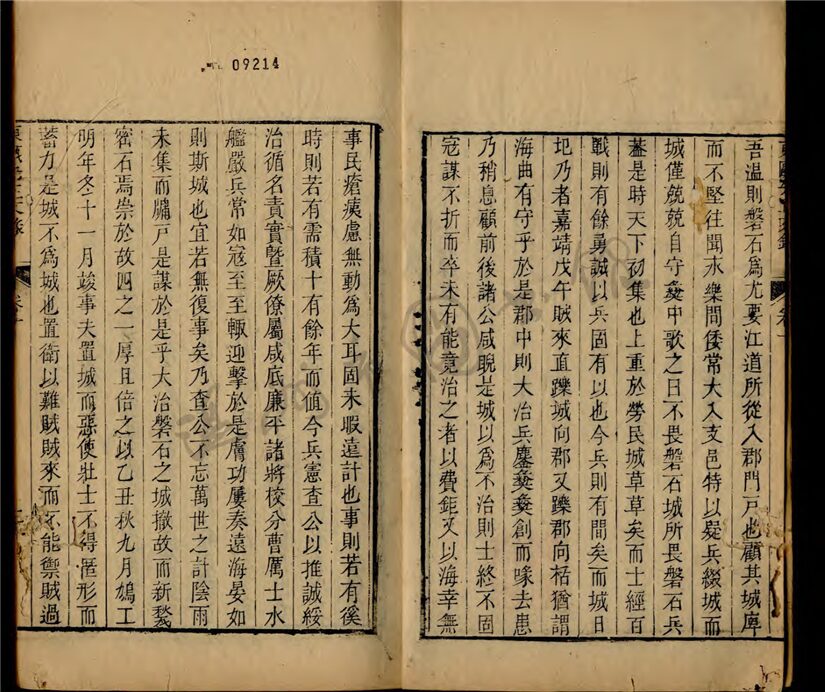 09214
吾温則磐石爲尤要江道所從入郡門戸也顧其城庳
而不堅往聞永樂間倭常大入支邑特以疑兵綴城而
城僅兢兢自守夔中歌之曰不畏磐石城所畏磐石兵
葢是時天下初集也上重於勞民城草草矣而士經百
戰則有餘勇誠以兵固有以也今兵則有間矣而城日
圮乃者嘉靖戊午賊來直躒城向郡又躒郡向栝猶謂
海曲有守乎於是郡中則大治兵鏖夔夔創而喙去患
乃稍息顧前後諸公咸睨是城以爲不治則士終不固
冦謀不折而卒未有能竟治之者以費鉅又以海幸無
事民瘡痍慮無動爲大耳固未暇遠計也事則若有徯
時則若有需積十有餘年而值今兵憲查公以推誠綏
治循名責實曁厥僚屬咸底廉平諸將校分曹厲士水
艦嚴兵常如冦至至輒迎擊於是膚功屢奏遠海晏如
則斯城也宜若無復事矣乃查公不忘萬世之計陰雨
未集而牖戸是謀於是乎大治磐石之城撤故而新甃
密石焉崇於故四之一厚且倍之以乙丑秋九月鳩工
明年冬十一月竣事夫置城而惡使壯士不得𠊓形而
蓄力是城不爲城也置衛以難賊賊來而不能禦賊過